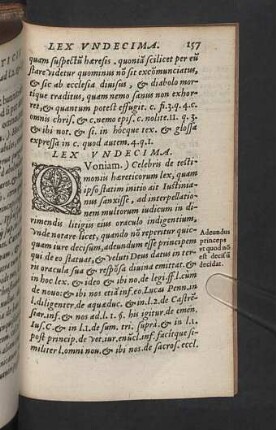 LEX VNDECIMA. 157
quam suspectũ hæresis. quontã scilicet per eũ
stare videtur quominus nõ sit excõmunicatus,
& sic ab ecclesia diuisus, & diabolo mor-
tique traditus, quam nemo sanus non exhor-
ret, & quantum potest effugit. c. fi. 3. q. 4. c.
omnis chris. & c. nemo epis. c. nolite. 11. q. 3.
& ibi not. & si. in hocque tex. & glossa
expressa in c. quod autem. 4. q. 1.
LEX VNDECIMA.
QVoniam.) Celebris de testi-
monijs hæreticorum lex, quam
ipso statim initio ait Iustinia-
nus sanxisse, ad interpellatio-
nem multorum iudicum in di-
rimendis litigijs eius oraculo indigentium,
vnde notare licet, quando nõ reperitur quic-
quam iure decisum, adeundum esse principem
qui de eo statuat, & veluti Deus datus in ter-
ris oracula sua & respõsa diuina emittat. &
in hoc lex. ideo & ibi no. de legi. ff. l. cum
de nouo: & ibi nos etiã inf. eo. Lucas Penn. in
l. diligenter, de aquæduc. & in l. 2. de Castrẽ-
siar. inf. & nos ad l. 1. §. his igitur. de emen.
Ius. C. & in l. 2. de sum. tri. suprà. & in l. 1.
post princip. de vet. iur. enucl. inf. facitque si-
militer l. omni nou. & ibi nos. de sacros. eccl.
Adeundus
princeps
et quod nõ
est decisũ
decidat.